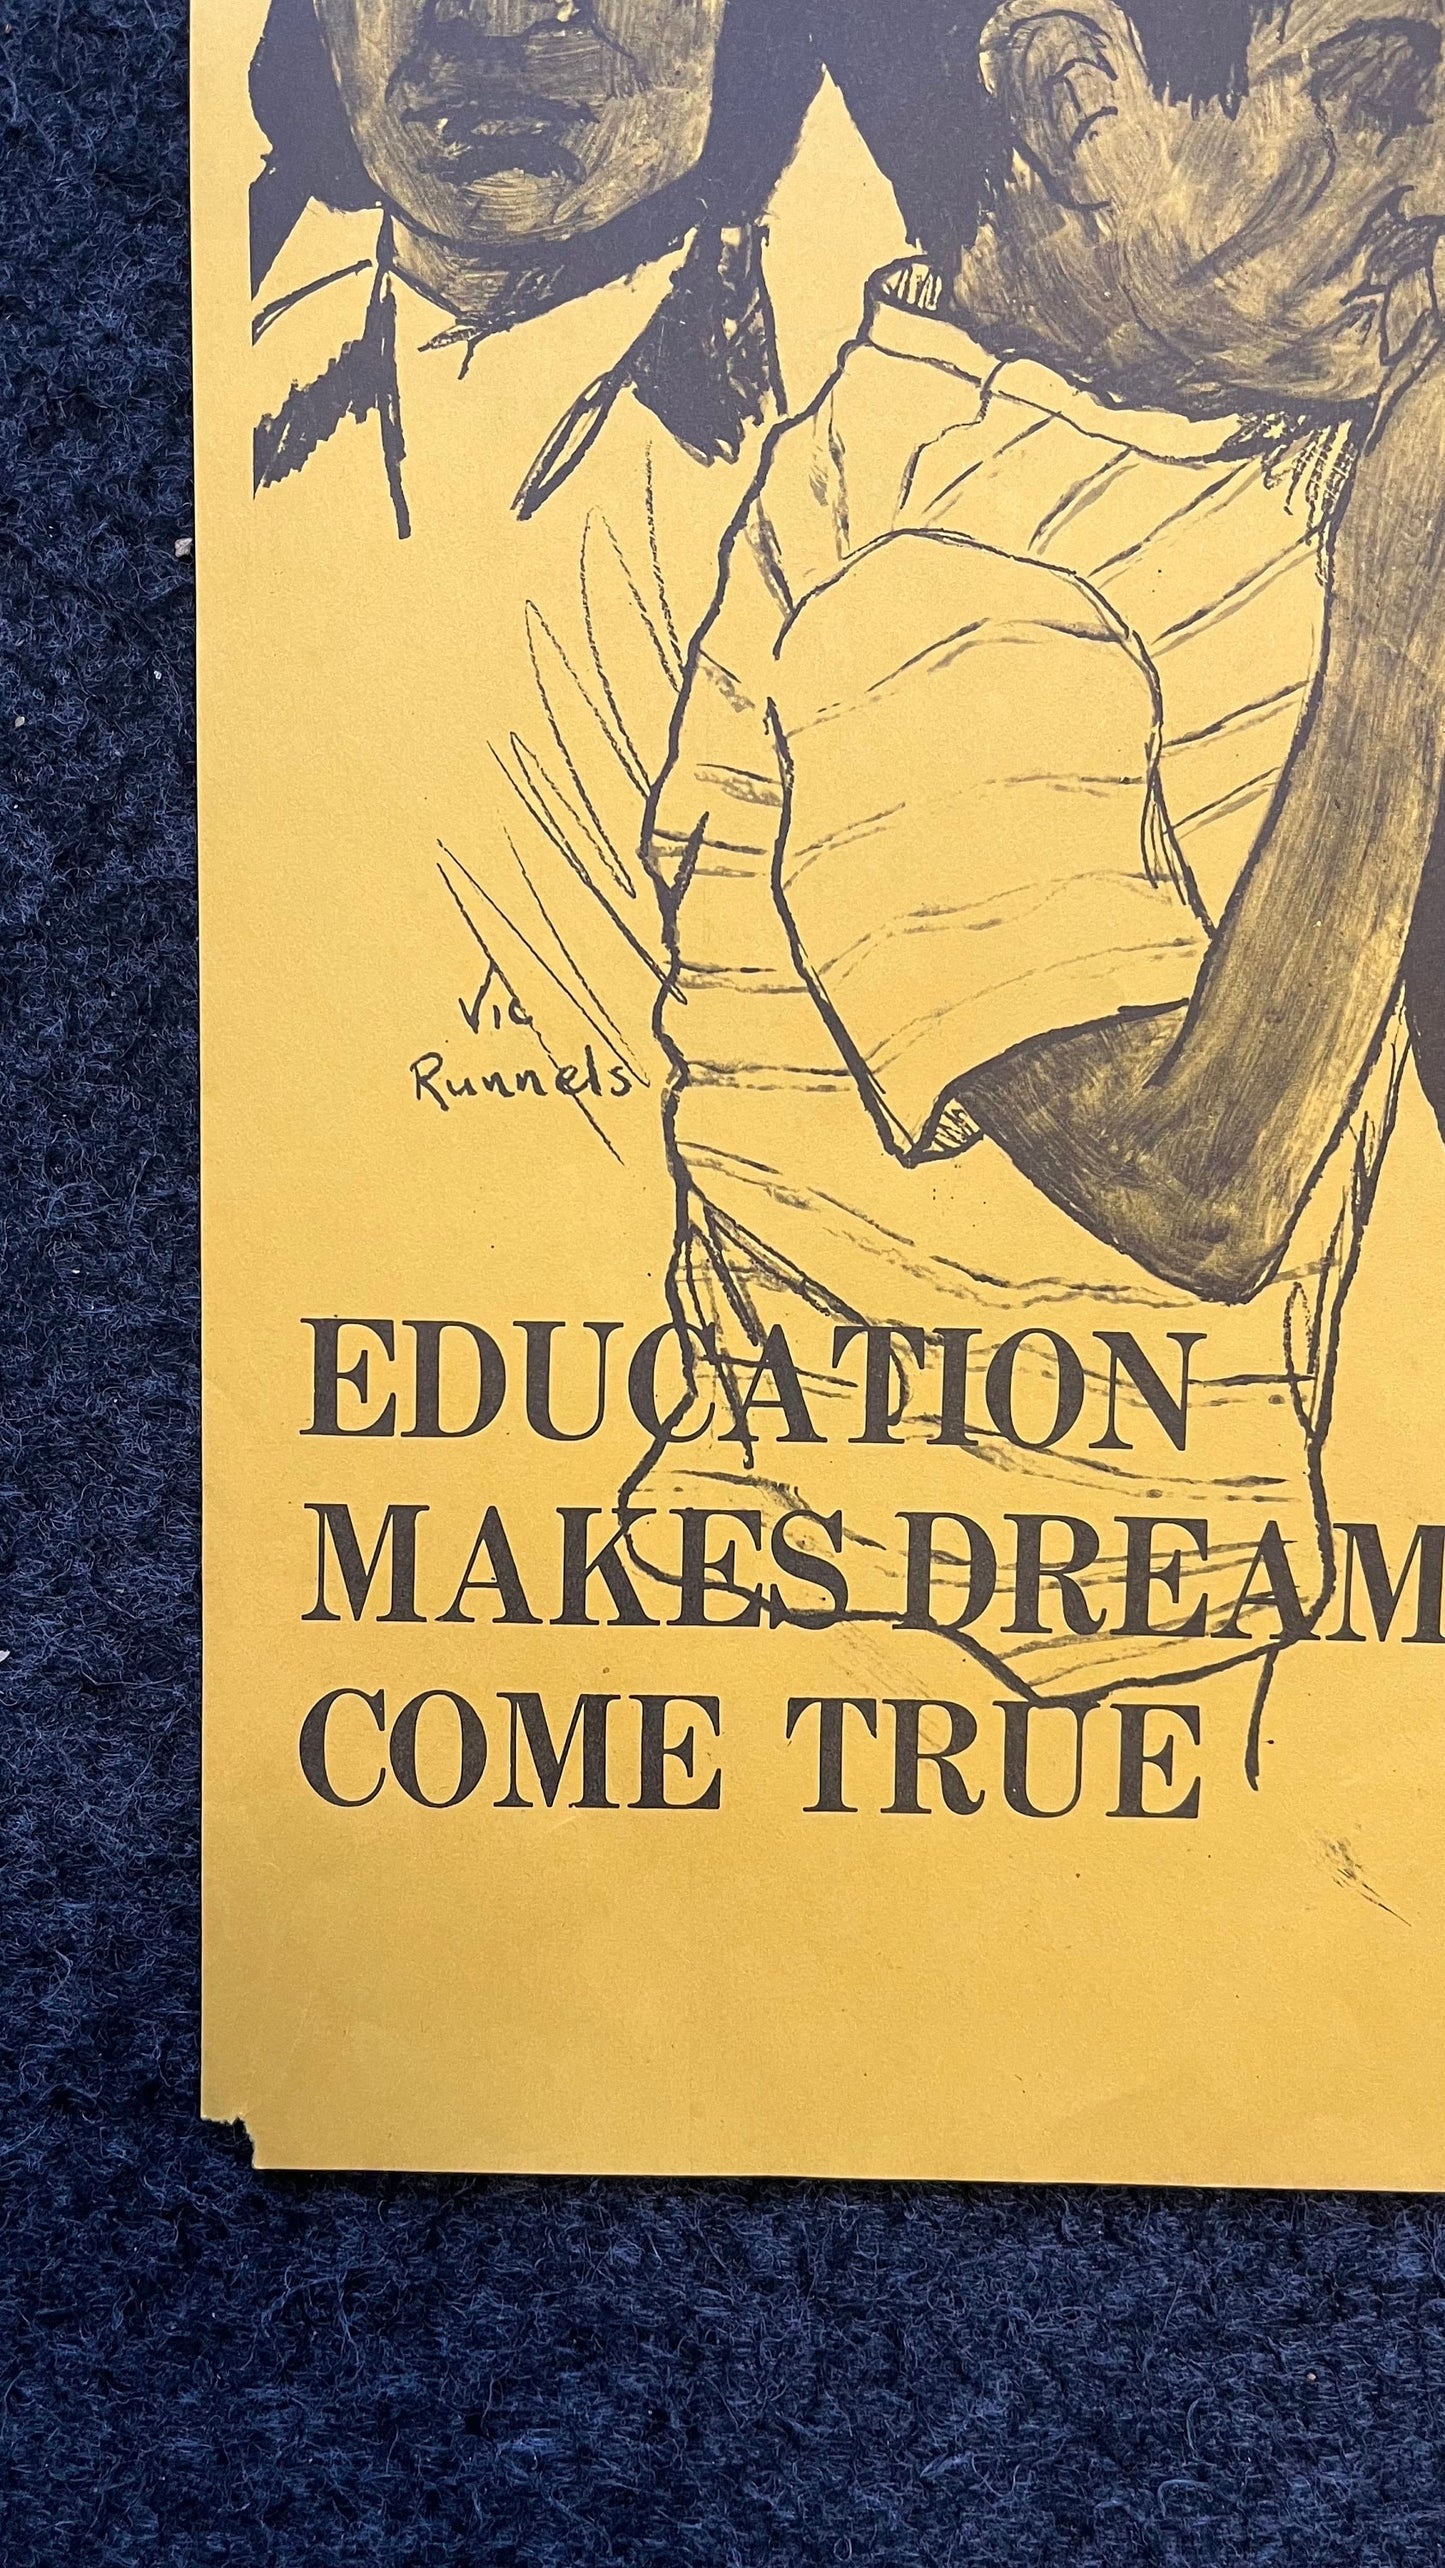 Vic
Runnels
EDUCATION
MAKES DREAM
COME TRUE